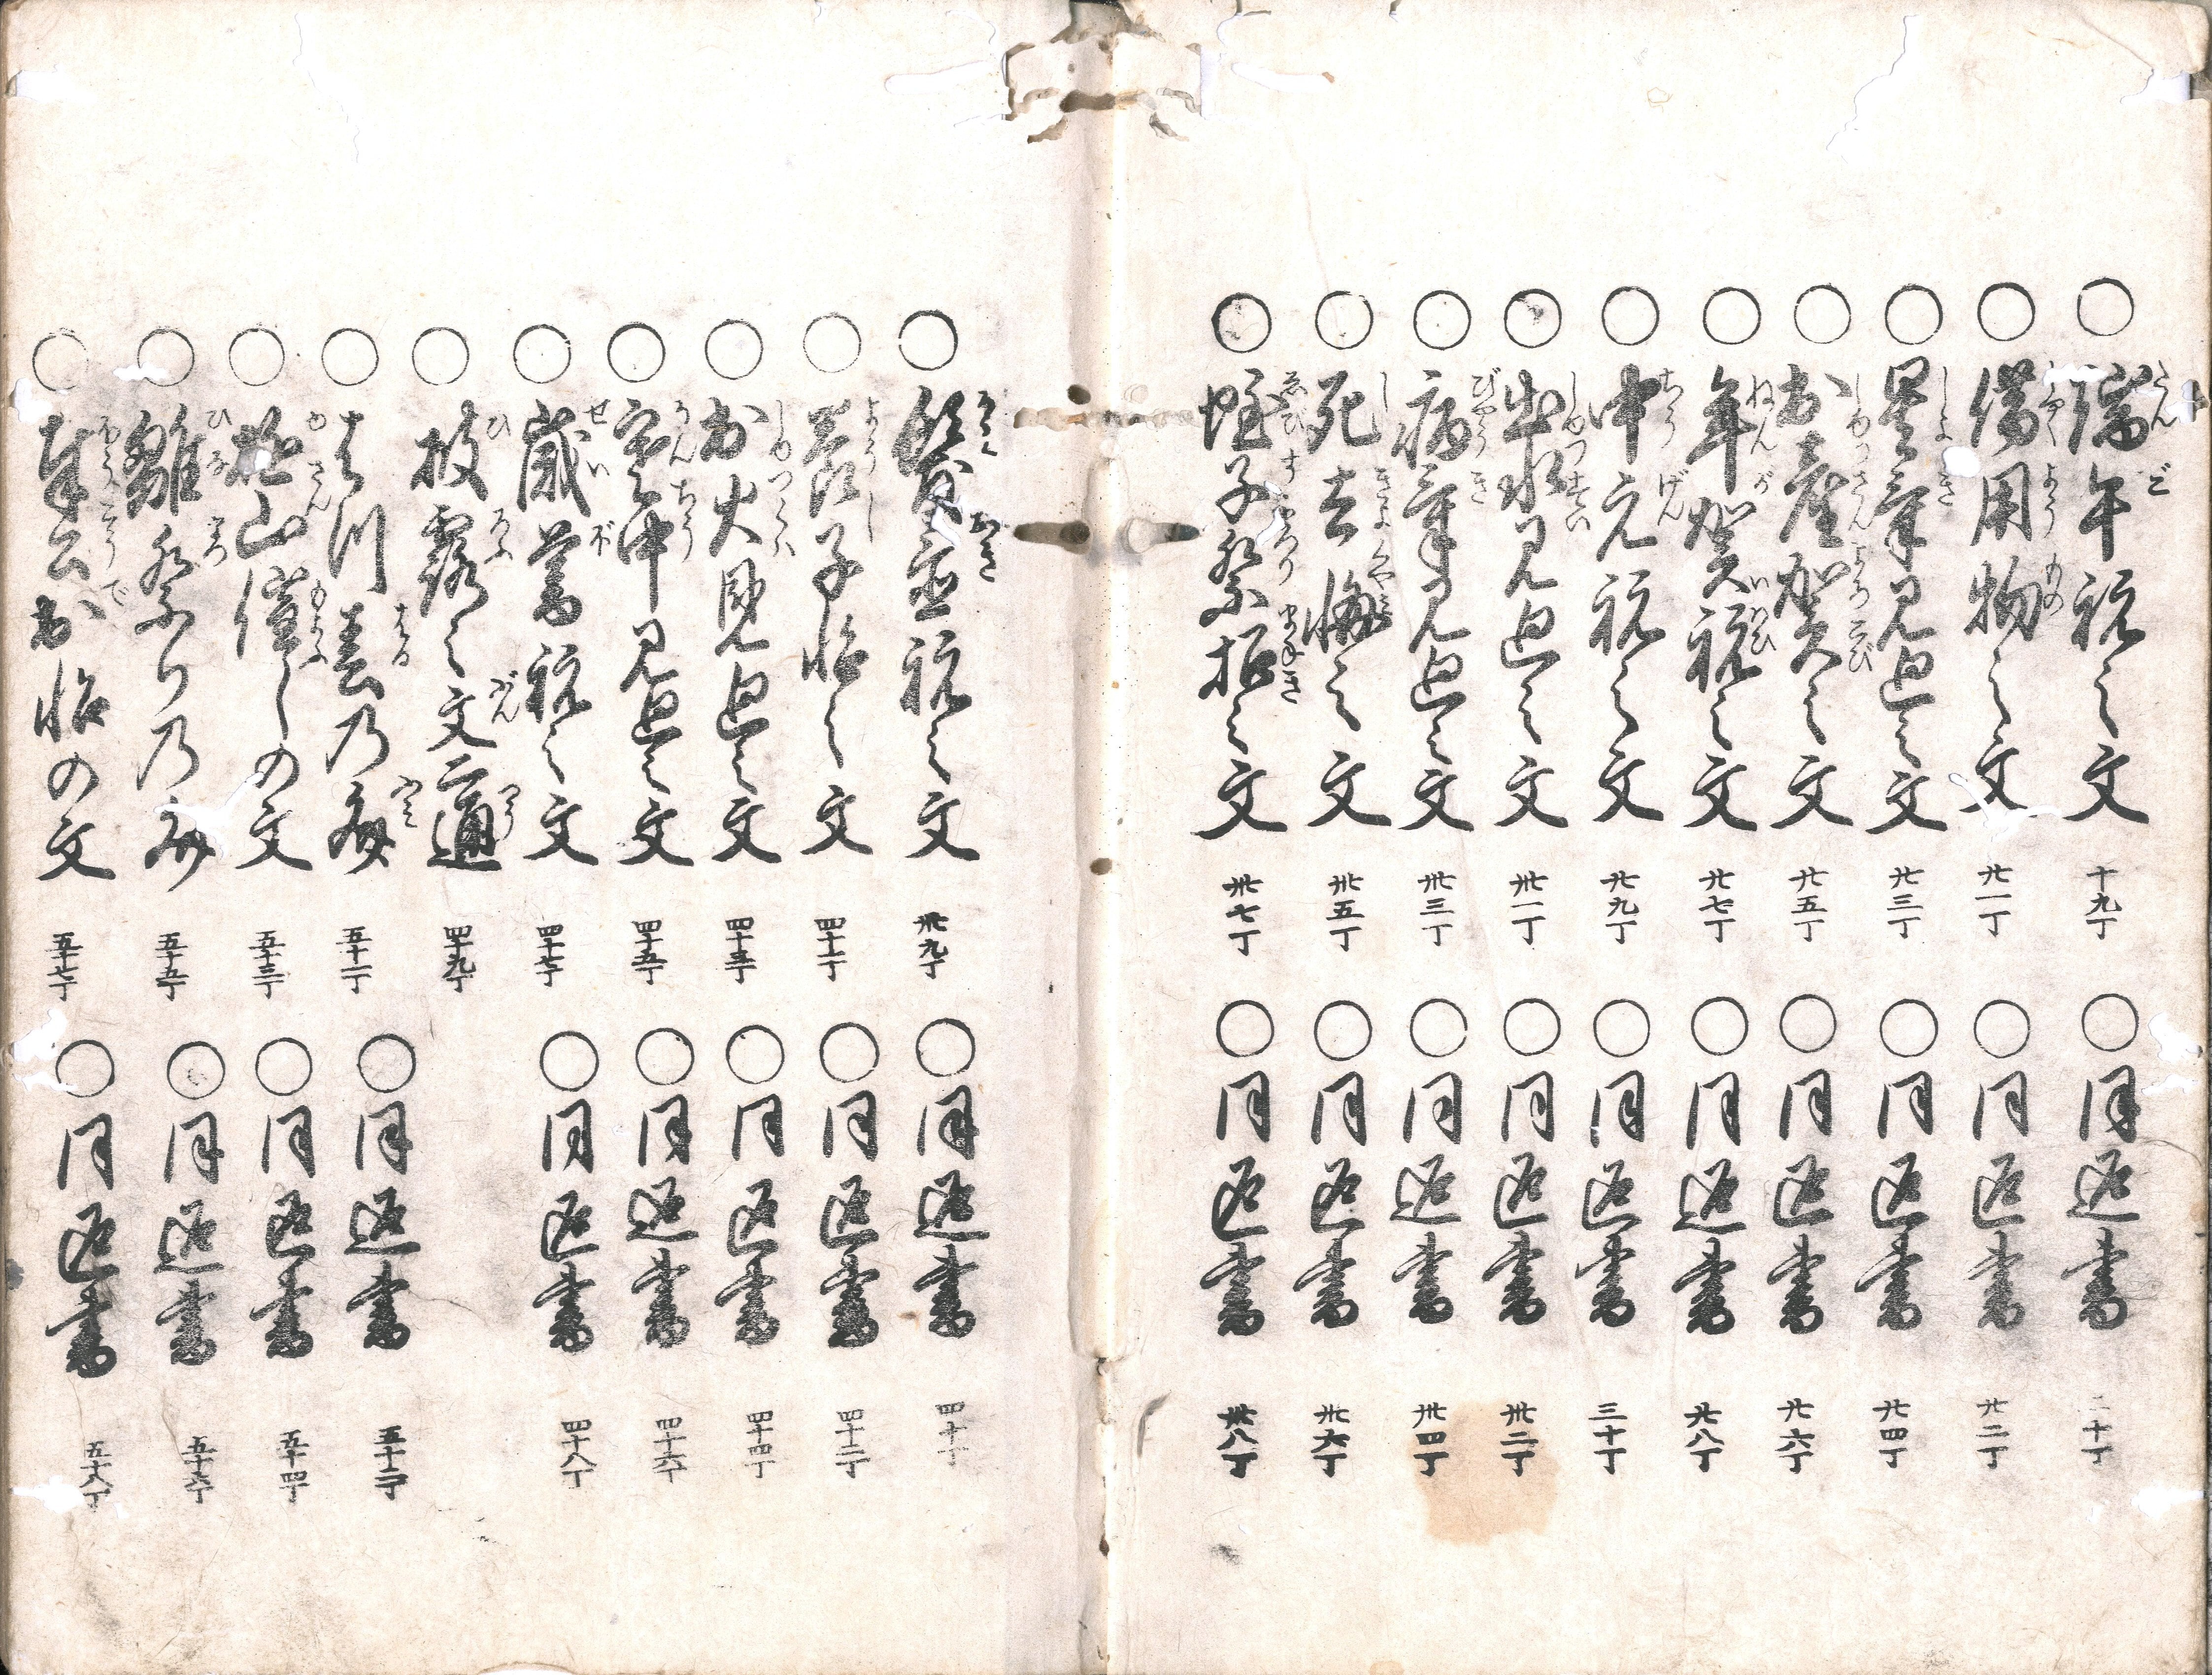 ○端午祝之文 十九丁
○同返書 二十丁
○借用物之文 廿一丁
○同返書 廿二丁
○暑氣見廻之文 廿三丁
○同返書 廿四丁
○出産賀之文 廿五丁
○同返書 廿六丁
○年賀祝之文 廿七丁
○同返書 廿八丁
○中元祝之文 廿九丁
○同返書 三十丁
○出水見廻之文 丗一丁
○同返書 丗二丁
○病氣見廻之文 丗三丁
○同返書 丗四丁
○死去悔之文 丗五丁
○同返書 丗六丁
○蛭子祭招之文 丗七丁
○同返書 丗八丁
○髪置祝之文 丗九丁
○同返書 四十丁
○養子悦之文 四十一丁
○同返書 四十二丁
○出火見廻之文 四十三丁
○同返書 四十四丁
○寒中見廻之文 四十五丁
○同返書 四十六丁
○歳暮祝之文 四十七丁
○同返書 四十八丁
○披露之文二通 四十九丁
○はつ春乃文 五十一丁
○同返書 五十二丁
○遊山催しの文 五十三丁
○同返書 五十四丁
○雛祭り乃文 五十五丁
○同返書 五十六丁
○奉公出悦の文 五十七丁
○同返書 五十八丁